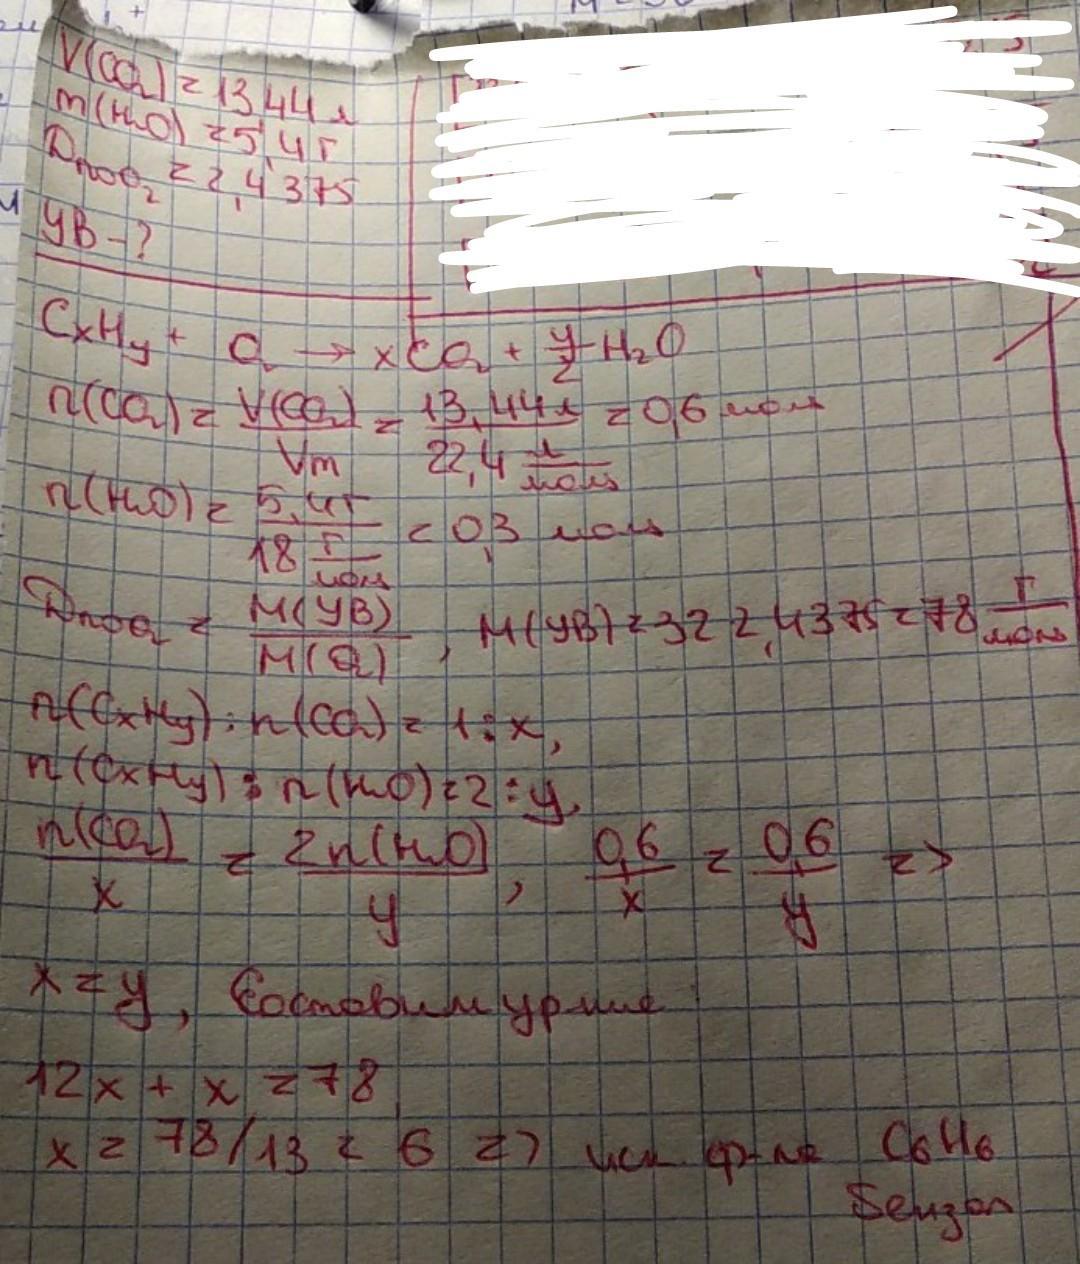 V(CO₂) = 13,44 л
m(H₂O) = 5,4 г
D по O₂ = 2,4375
УВ - ?
CxHy + O₂ → xCO₂ + y/2 H₂O
n(CO₂) = V(CO₂)/Vm = 13,44 л / 22,4 л/моль = 0,6 моль
n(H₂O) = 5,4 г / 18 г/моль = 0,3 моль
D по O₂ = M(УВ)/M(O₂), M(УВ) = 32 2,4375 = 78 г/моль
n(CxHy) : n(CO₂) = 1 : x,
n(CxHy) : n(H₂O) = 2 : y,
n(CO₂)/x = 2n(H₂O)/y, 0,6/x = 0,6/y =>
x = y, Составим ур-ние
12x + x = 78
x = 78/13 = 6 => иск ф-ла C₆H₆
Бензол